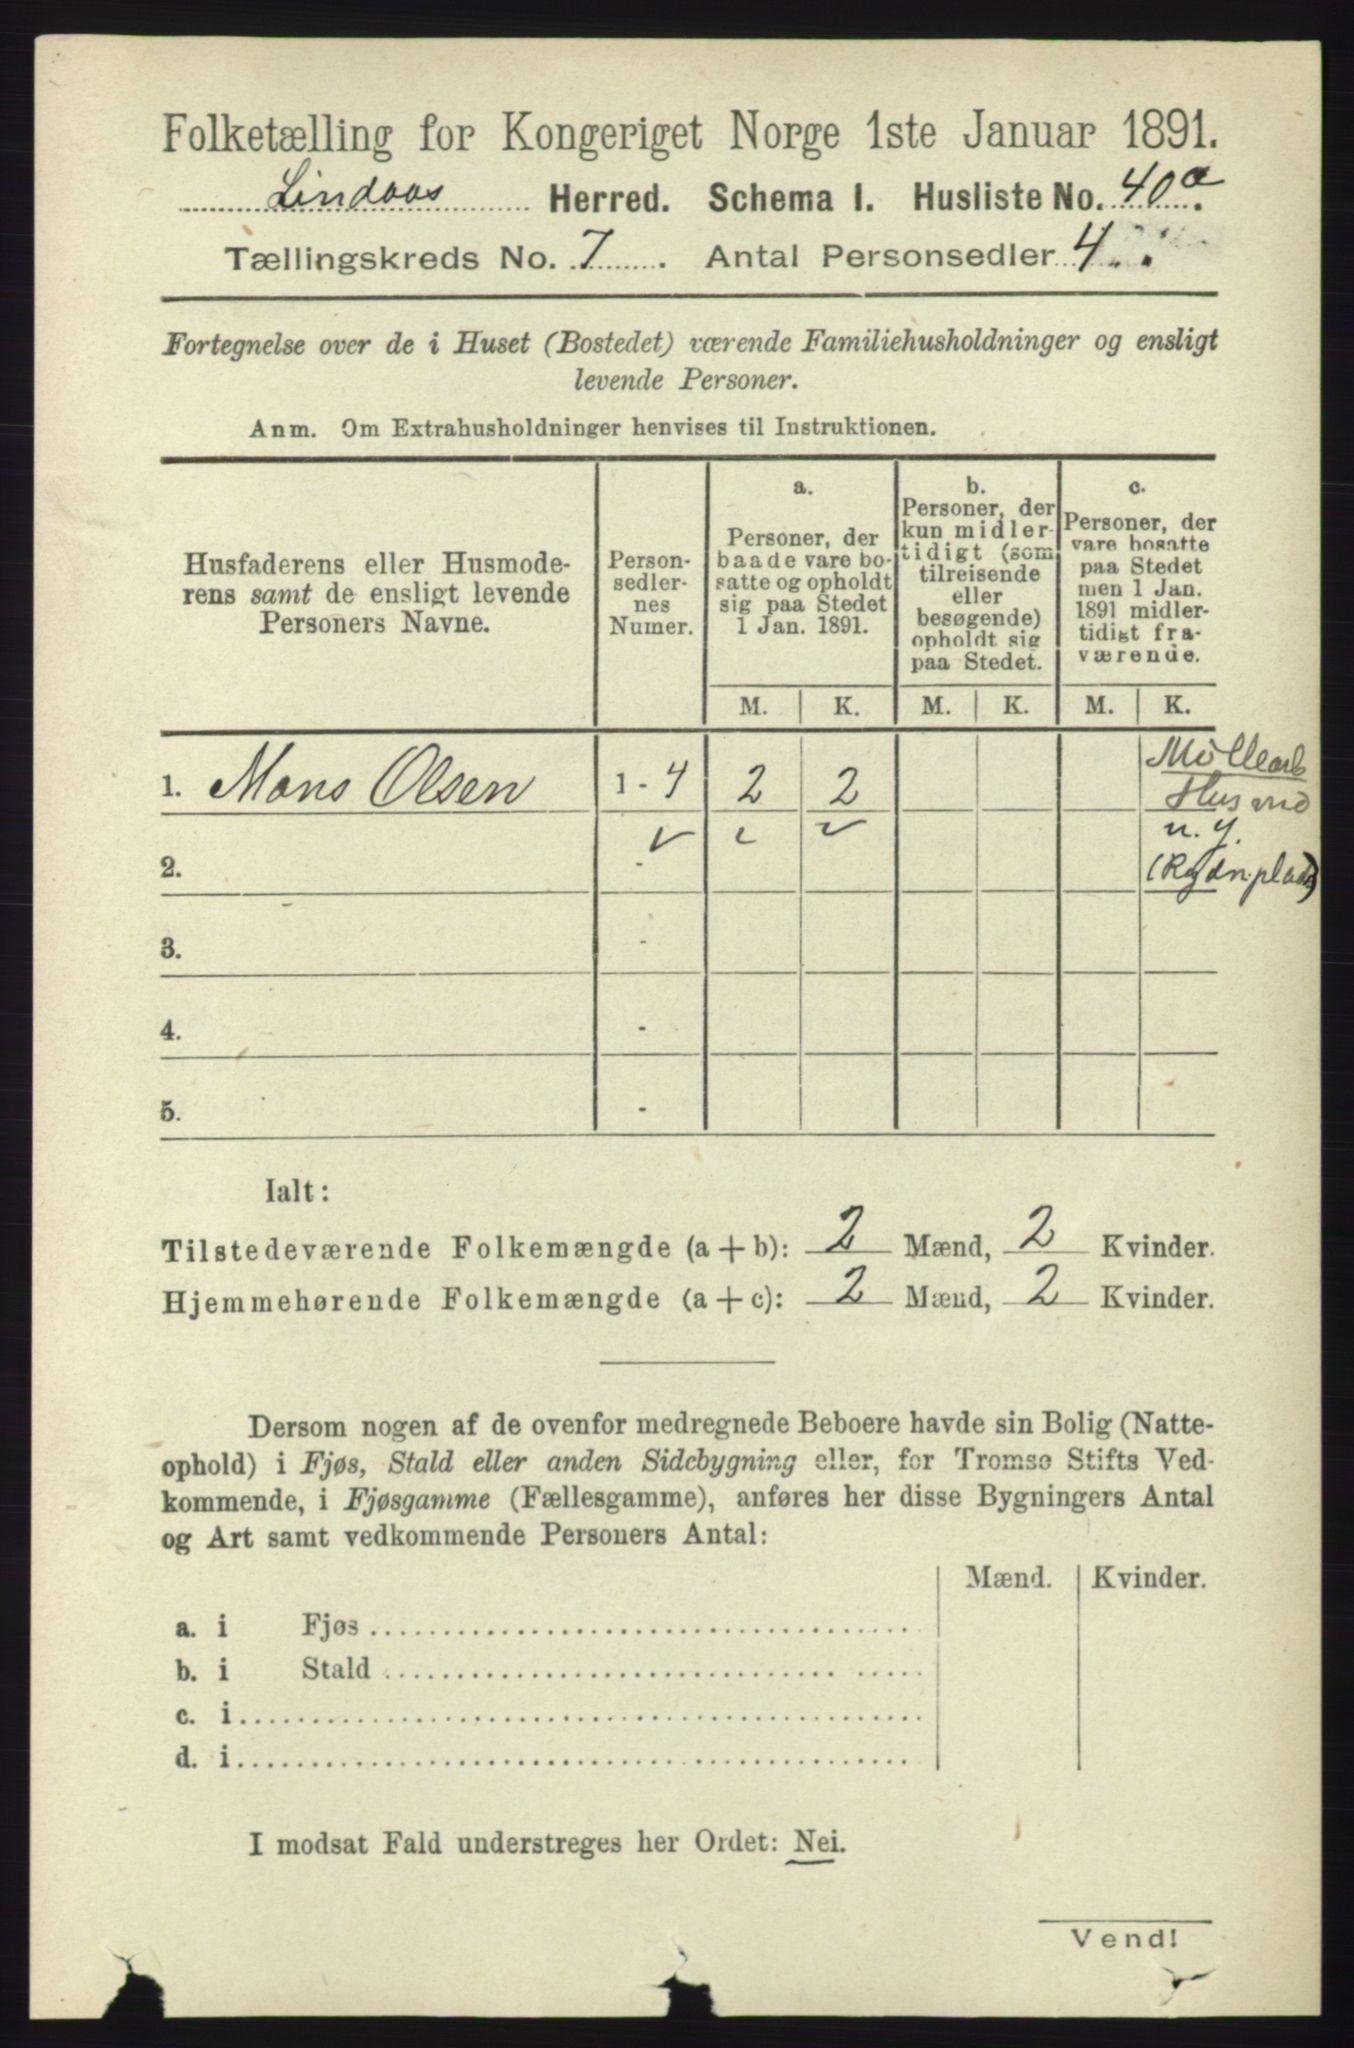 Folketælling for Kongeriget Norge 1ste Januar 1891.
Lindaas Herred. Schema I. Husliste No. 40a.
Tællingskreds No. 7. Antal Personsedler 4.
Fortegnelse over de i Huset (Bostedet) værende Familiehusholdninger og ensligt
levende Personer.
Anm. Om Extrahusholdninger henvises til Instruktionen.
Husfaderens eller Husmode-
rens samt de ensligt levende
Personers Navne.
Person-
sedler-
nes
Numer.
a.
Personer, der
baade vare bo-
satte og opholdt
sig paa Stedet
1 Jan. 1891.
b.
Personer, der
kun midler-
tidigt (som
tilreisende
eller
besøgende)
opholdt sig
paa Stedet.
c.
Personer, der
vare bosatte
paa Stedet
men 1 Jan.
1891 midler-
tidigt fra-
værende.
M. K. M. K. M. K.
1. Mons Olsen 1 - 4 2 2
Møllearb
Husmd
u. J.
2. -
3. -
4. -
5. -
Ialt:
Tilstedeværende Folkemængde (a + b): 2 Mænd, 2 Kvinder.
Hjemmehørende Folkemængde (a + c): 2 Mænd, 2 Kvinder.
Dersom nogen af de ovenfor medregnede Beboere havde sin Bolig (Natte-
ophold) i Fjøs, Stald eller anden Sidebygning eller, for Tromsø Stifts Ved-
kommende, i Fjøsgamme (Fællesgamme), anføres her disse Bygningers Antal
og Art samt vedkommende Personers Antal:
Mænd. Kvinder.
a. i Fjøs
b. i Stald
c. i
d. i
I modsat Fald understreges her Ordet: Nei.
Vend!